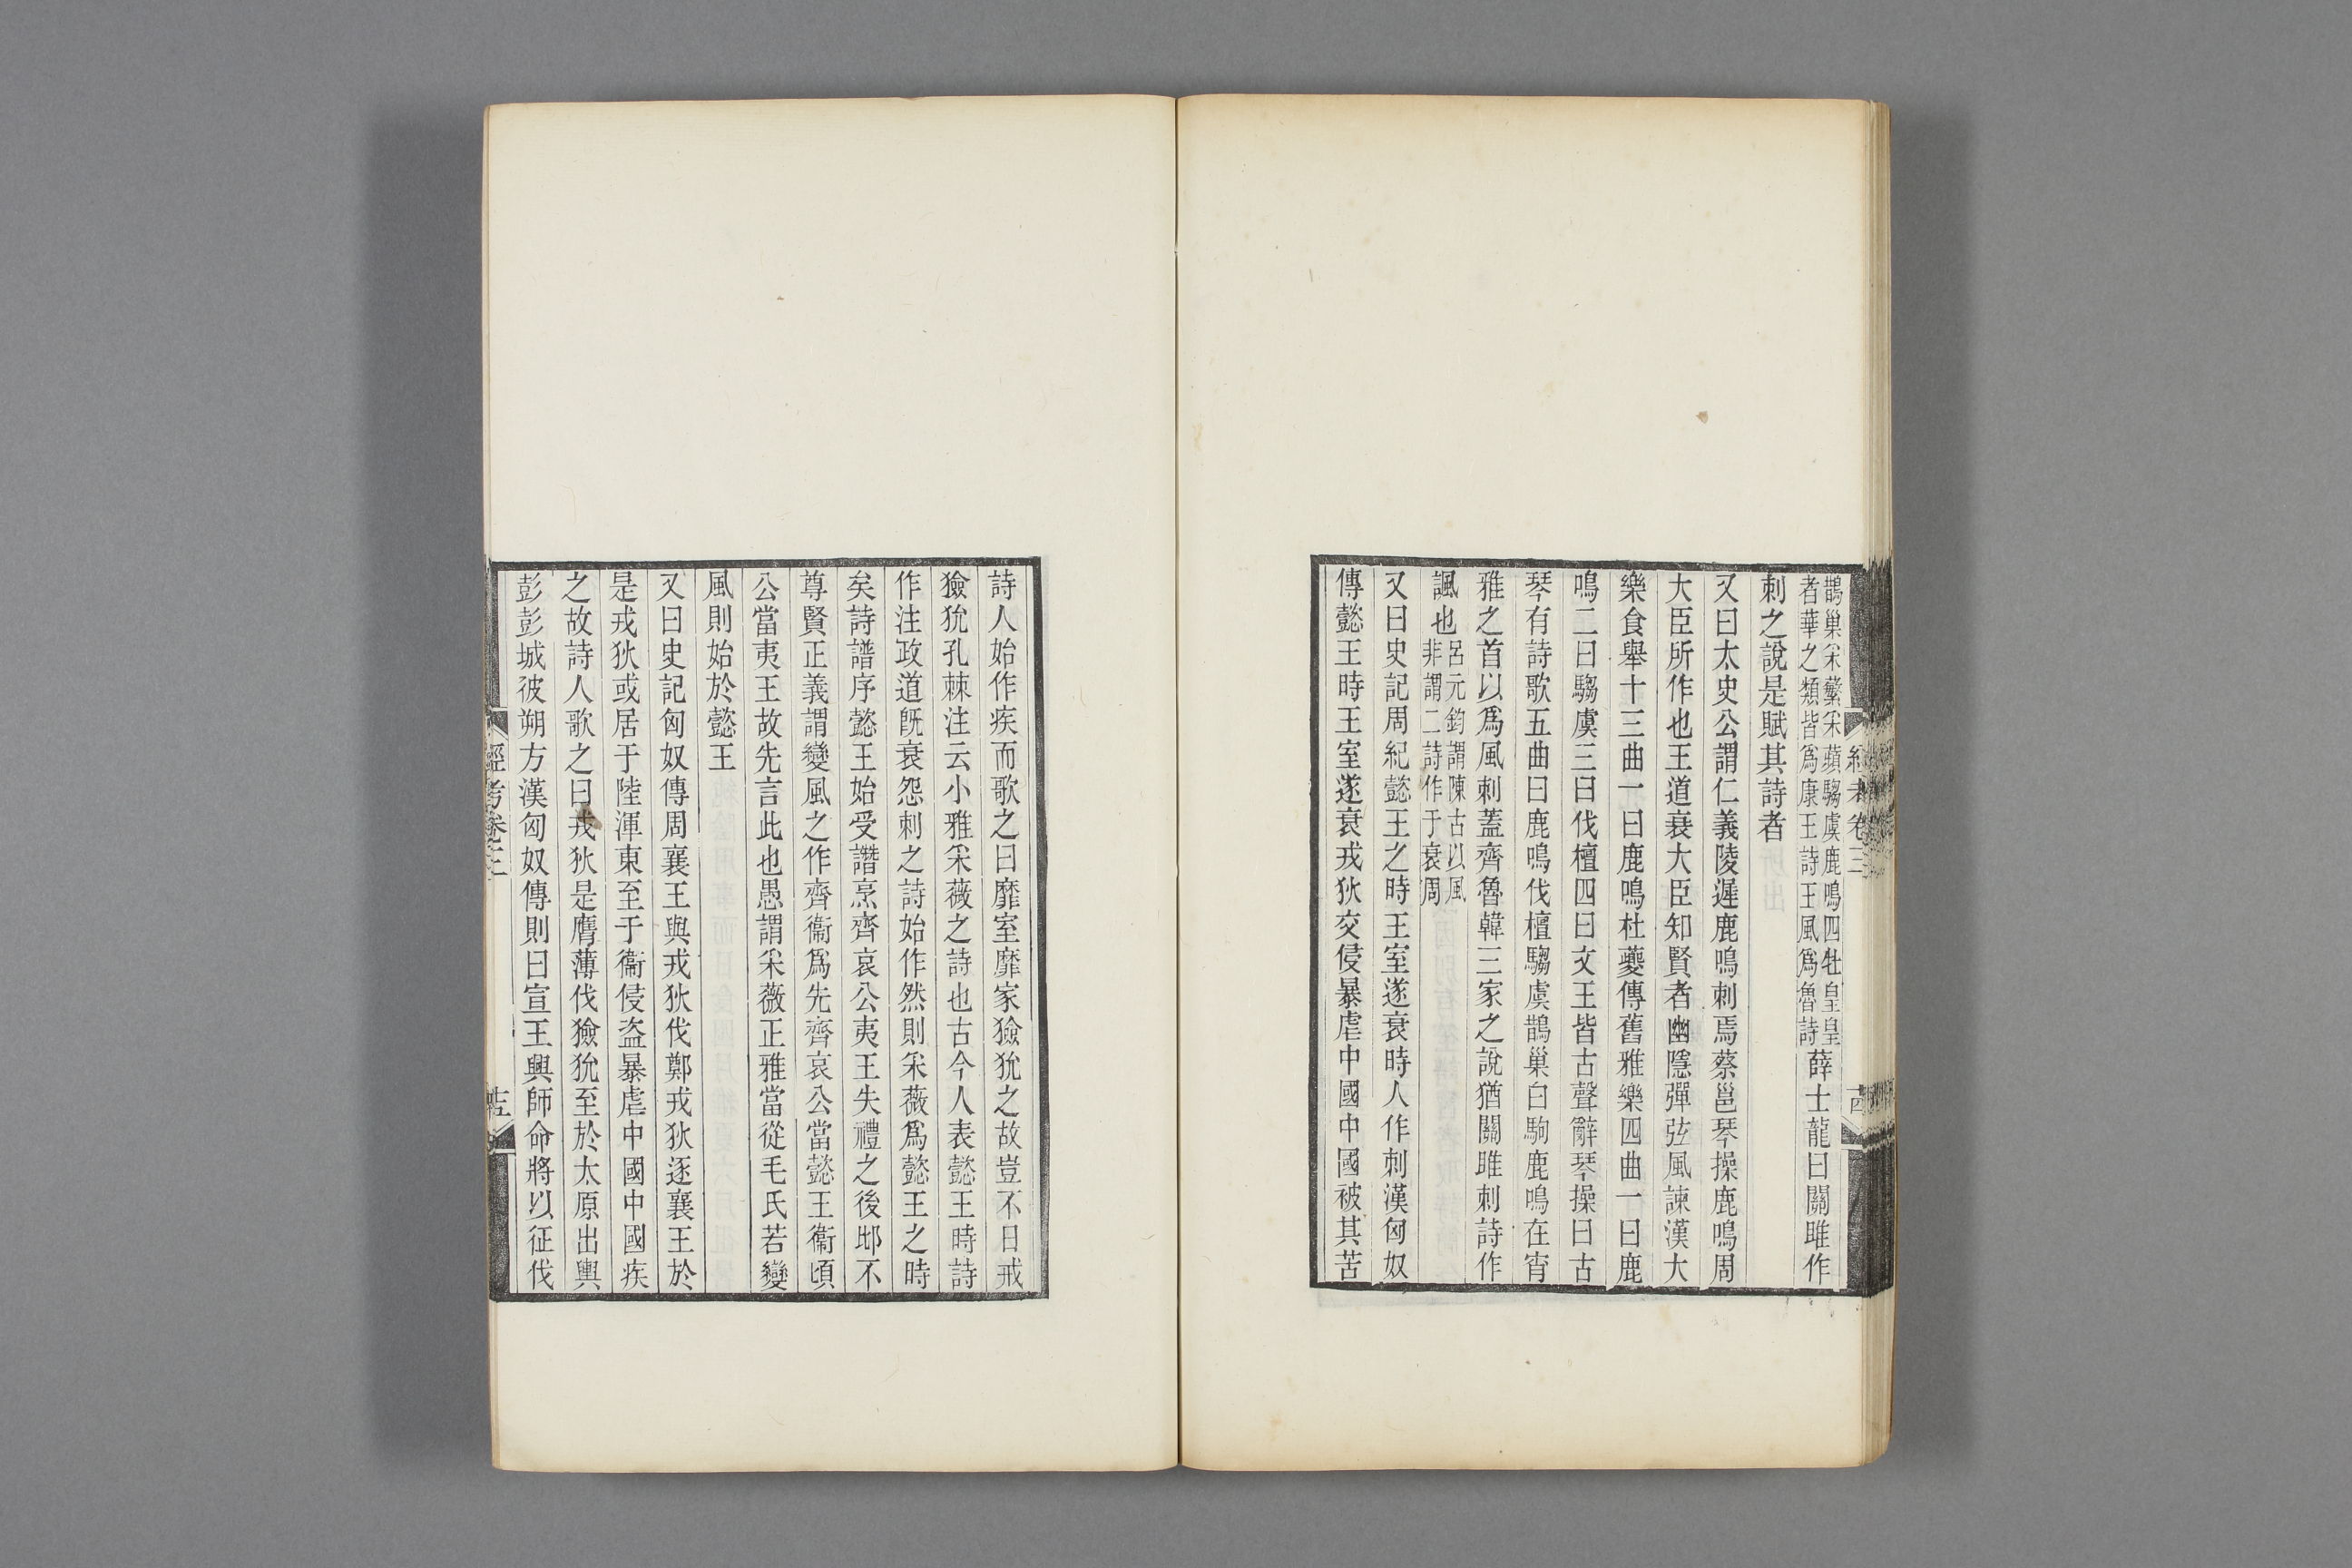 鵲巢采蘩采蘋騶虞鹿鳴四牡皇皇
者華之類皆爲康王詩王風爲魯詩
薛士龍曰關雎作
刺之說是賦其詩者
又曰太史公謂仁義陵遲鹿鳴刺焉蔡邕琴操鹿鳴周
大臣所作也王道衰大臣知賢者幽隱彈弦風諫漢大
樂食舉十三曲一曰鹿鳴杜夔傳舊雅樂四曲一曰鹿
鳴二曰騶虞三曰伐檀四曰文王皆古聲辭琴操曰古
琴有詩歌五曲曰鹿鳴伐檀騶虞鵲巢白駒鹿鳴在宵
雅之首以爲風刺蓋齊魯韓三家之說猶關雎刺詩作
諷也
呂元鈞謂陳古以風
非謂二詩作于衰周
又曰史記周紀懿王之時王室遂衰時人作刺漢匈奴
傳懿王時王室遂衰戎狄交侵暴虐中國中國被其苦
經考卷三
詩人始作疾而歌之曰靡室靡家獫狁之故豈不日戒
獫狁孔棘注云小雅采薇之詩也古今人表懿王時詩
作注政道旣衰怨刺之詩始作然則采薇爲懿王之時
矣詩譜序懿王始受譖烹齊哀公夷王失禮之後邶不
尊賢正義謂變風之作齊衞爲先齊哀公當懿王衞頃
公當夷王故先言此也愚謂采薇正雅當從毛氏若變
風則始於懿王
又曰史記匈奴傳周襄王與戎狄伐鄭戎狄逐襄王於
是戎狄或居于陸渾東至于衞侵盜暴虐中國中國疾
之故詩人歌之曰戎狄是膺薄伐獫狁至於太原出輿
彭彭城彼朔方漢匈奴傳則曰宣王興師命將以征伐
經考卷三